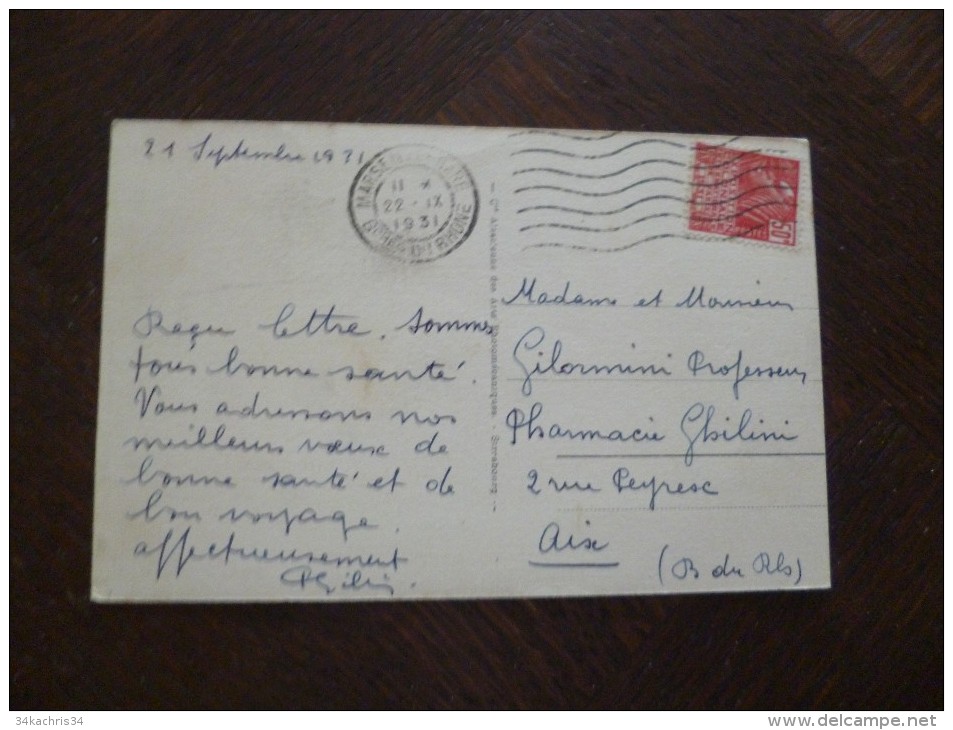 21 Septembre 1931
MARSEILLE GARE
11 *
22 - IX
1931
BCHES DU RHONE
50c
Reçu lettre, sommes
tous bonne santé.
Vous adressons nos
meilleurs vœux de
bonne santé et de
bon voyage.
affectueusement
Madame et Monsieur
Gilormini Professeur
Pharmacie Ghilini
2 rue Peyresc
Aix
(B du Rh)
Alsacienne des Arts Photomécaniques - Strasbourg -
34kachris34
www.delcampe.net